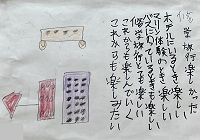 修学旅行楽しかった
ホテルにいるとき楽しい
マリン体験のとき楽しい
バスにのっているときも楽しい
修学旅行楽しくて楽しい
これからも楽しんでいく
これからも楽しみたい